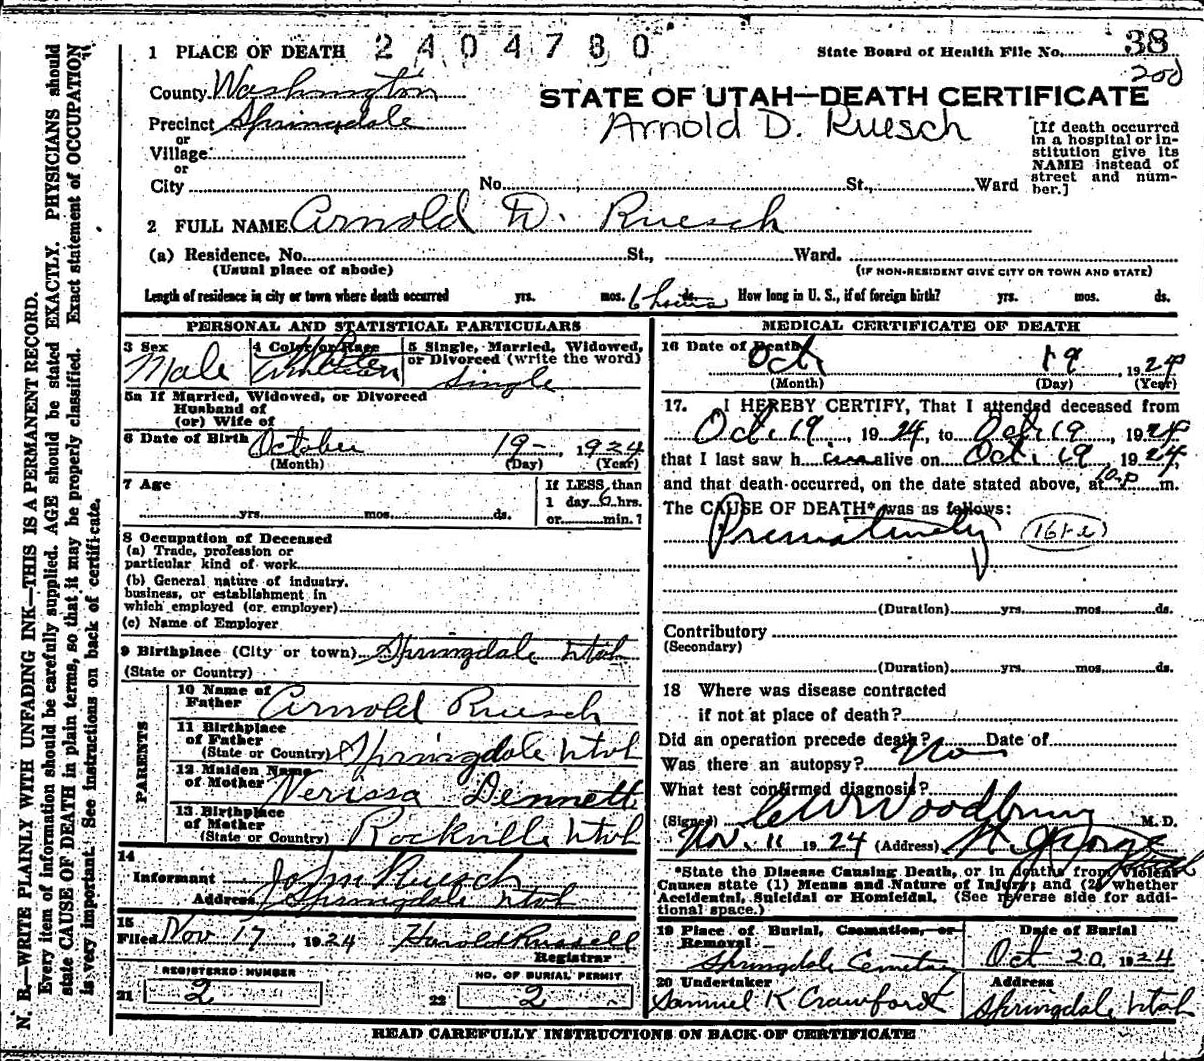 1 PLACE OF DEATH 2404780 State Board of Health File No. 38
200
County Washington
STATE OF UTAH—DEATH CERTIFICATE
Precinct Springdale
Arnold D. Ruesch
or
Village
or
City No. , St., Ward
[If death occurred
in a hospital or in-
stitution give its
NAME instead of
street and num-
ber.]
2 FULL NAME Arnold D. Ruesch
(a) Residence, No. St., Ward.
(Usual place of abode) (IF NON-RESIDENT GIVE CITY OR TOWN AND STATE)
Length of residence in city or town where death occurred yrs. mos. 6 hours ds. How long in U. S., if of foreign birth? yrs. mos. ds.
PERSONAL AND STATISTICAL PARTICULARS
3 Sex Male
4 Color or Race White
5 Single, Married, Widowed,
or Divorced (write the word)
Single
5a If Married, Widowed, or Divorced
Husband of
(or) Wife of
6 Date of Birth October 19- , 1924
(Month) (Day) (Year)
7 Age
yrs. mos. ds.
If LESS than
1 day 6 hrs.
or min.?
8 Occupation of Deceased
(a) Trade, profession or
particular kind of work
(b) General nature of industry,
business, or establishment in
which employed (or employer)
(c) Name of Employer
9 Birthplace (City or town) Springdale Utah
(State or Country)
PARENTS
10 Name of
Father Arnold Ruesch
11 Birthplace
of Father
(State or Country) Springdale Utah
12 Maiden Name
of Mother Nerissa Dennett
13 Birthplace
of Mother
(State or Country) Rockville Utah
14
Informant John Ruesch
Address Springdale Utah
15
Filed Nov 17, 1924 Harold Russell
Registrar
REGISTERED NUMBER NO. OF BURIAL PERMIT
21 2 22 2
MEDICAL CERTIFICATE OF DEATH
16 Date of Death Oct 19 , 1924
(Month) (Day) (Year)
17. I HEREBY CERTIFY, That I attended deceased from
Oct. 19, 1924, to Oct. 19, 1924
that I last saw h alive on Oct. 19, 1924,
and that death occurred, on the date stated above, at 10 P m.
The CAUSE OF DEATH* was as follows:
Prematurely
(Duration) yrs. mos. ds.
Contributory
(Secondary)
(Duration) yrs. mos. ds.
18 Where was disease contracted
if not at place of death?
Did an operation precede death? No Date of
Was there an autopsy?
What test confirmed diagnosis?
(Signed) Woodbury M. D.
Nov. 11 1924 (Address) St George Utah
*State the Disease Causing Death, or in deaths from Violent
Causes state (1) Means and Nature of Injury; and (2) whether
Accidental, Suicidal or Homicidal. (See reverse side for addi-
tional space.)
19 Place of Burial, Cremation, or
Removal
Springdale Cemetary
Date of Burial
Oct 20, 1924
20 Undertaker
Samuel K Crawford
Address
Springdale Utah
READ CAREFULLY INSTRUCTIONS ON BACK OF CERTIFICATE
N. B.—WRITE PLAINLY WITH UNFADING INK—THIS IS A PERMANENT RECORD.
Every item of information should be carefully supplied. AGE should be stated EXACTLY. PHYSICIANS should
state CAUSE OF DEATH in plain terms, so that it may be properly classified. Exact statement of OCCUPATION
is very important. See instructions on back of certificate.